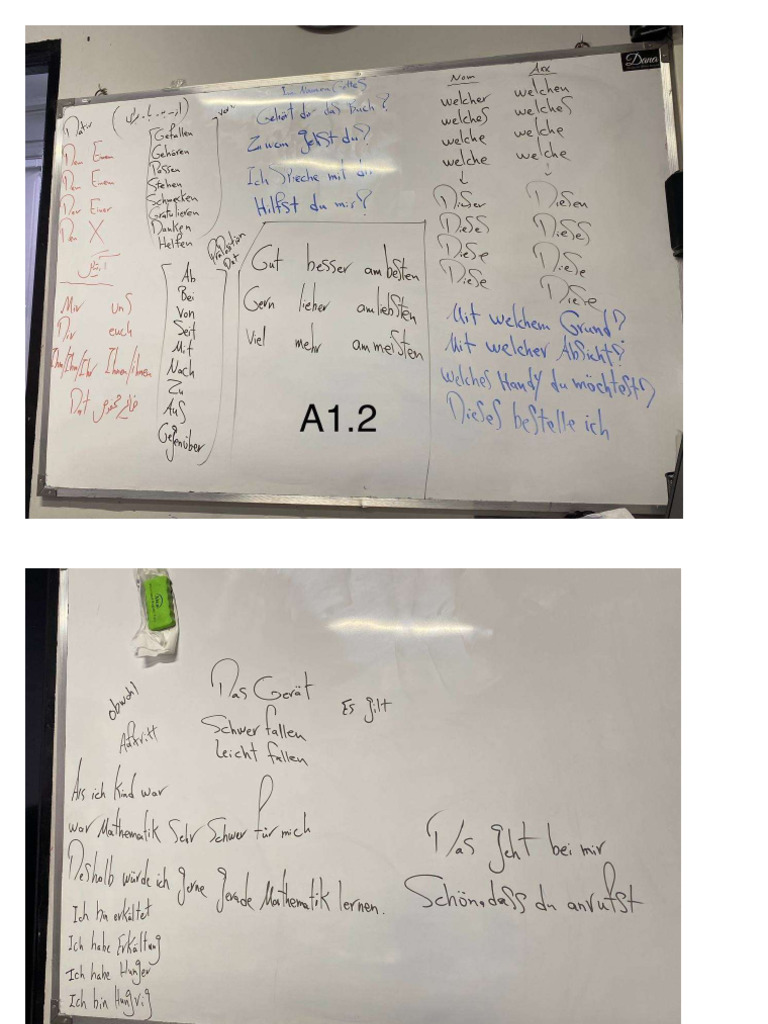 Dana
Dativ
Dem Einem
Dem Einem
Der Einer
Den X
Mir uns
Dir euch
Ihm/Ihm/Ihr Ihnen/ihnen
Dat
Gefallen
Gehören
Passen
Stehen
Schmecken
Gratulieren
Danken
Helfen
Präpostion
Dat
Ab
Bei
Von
Seit
Mit
Nach
Zu
Aus
Gegenüber
Gehört dir das Buch?
Zu wem gehst du?
Ich spreche mit dir
Hilfst du mir?
Gut besser am besten
Gern lieber am liebsten
Viel mehr am meisten
A1.2
Nom Akk
welcher welchen
welches welches
welche welche
welche welche
Dieser Diesen
Dieses Dieses
Diese Diese
Diese Diese
Mit welchem Grund?
Mit welcher Absicht?
welches Handy du möchtest?
Dieses bestelle ich
obwohl
Auftritt
Das Gerät
Schwer fallen
Leicht fallen
Es gilt
Als ich Kind war
war Mathematik Sehr Schwer für mich
Deshalb würde ich gerne gerade Mathematik lernen.
Ich bin erkältet
Ich habe Erkältung
Ich habe Hunger
Ich bin Hungrig
Das geht bei mir
Schön, dass du anrufst